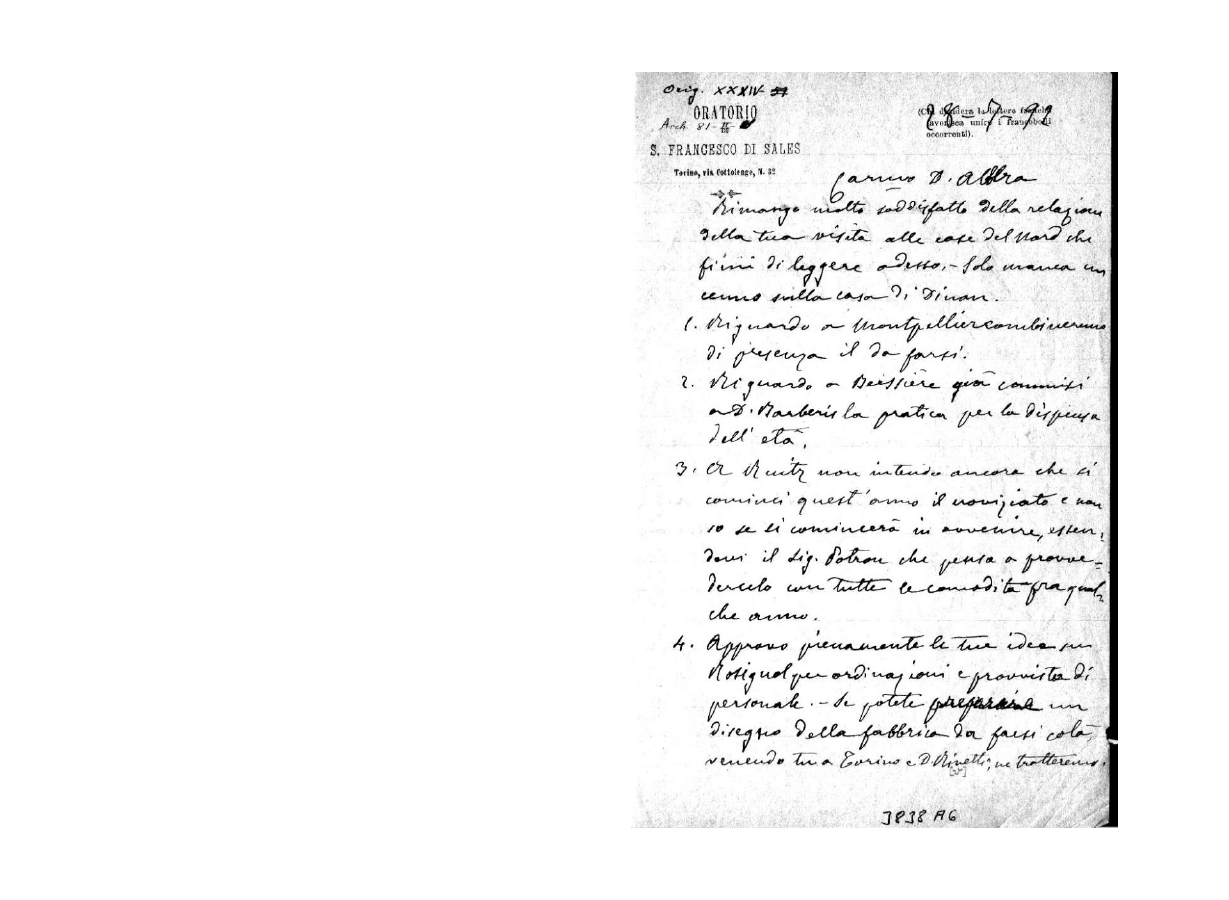 Orig. XXXIV
ORATORIO
Arch. 81-II-
S. FRANCESCO DI SALES
Torino, via Cottolengo, N. 32
(Chi desidera la lettera franchi
favorisca unire i francobolli
occorrenti).
28-7-92
Carmo D. Albera
Rimango molto soddisfatto della relazione
della tua visita alle case del Nord che
finii di leggere adesso. - Solo manca un
cenno sulla casa di Dinan.
1. Riguardo a Montpellier combineremo
di presenza il da farsi.
2. Riguardo a Beissière già commisi
a D. Barberis la pratica per la dispensa
dell' età.
3. A Ruitz non intendo ancora che si
cominci quest' anno il noviziato e non
so se si comincerà in avvenire, essen-
dovi il Sig. Potron che pensa a provve-
dercelo con tutte le comodità fra qual-
che anno.
4. Approvo pienamente le tue idee su
Rosignol per ordinazioni e provvista di
personale. - Se potete un
disegno della fabbrica da farsi colà,
venendo tu a Torino e D. Rinetti, ne tratteremo.
3838 A6